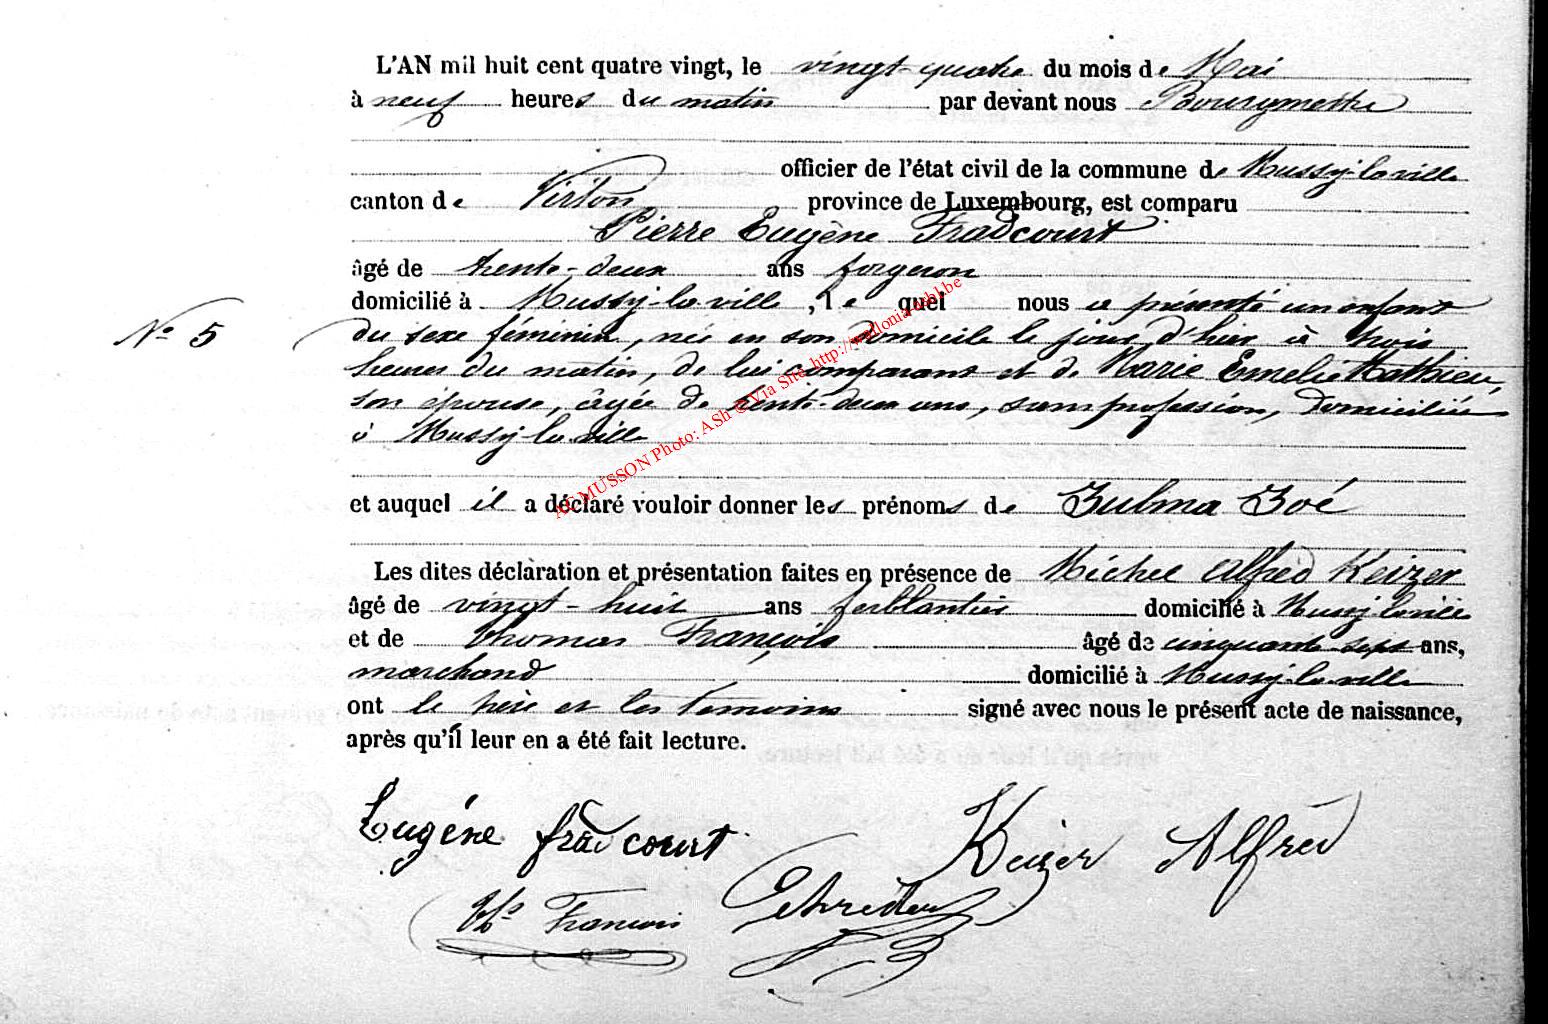 L'AN mil huit cent quatre vingt, le vingt-quatre du mois de Mai
à neuf heures du matin par devant nous Bourgmestre
officier de l'état civil de la commune de Mussy-la-ville
canton de Virton province de Luxembourg, est comparu
Pierre Eugène Fradcourt
âgé de trente-deux ans forgeron
domicilié à Mussy-la-ville, le quel nous a présenté un enfant
N° 5 du sexe féminin, née en son domicile le jour d'hier à trois
heures du matin, de lui comparant et de Marie Emelie Mathieu,
son épouse, âgée de trente-deux ans, sans profession, domiciliée
à Mussy-la-ville
et auquel il a déclaré vouloir donner les prénoms de Zulma Zoé
Les dites déclaration et présentation faites en présence de Michel Alfred Keizer
âgé de vingt-huit ans ferblantier domicilié à Mussy-la-ville
et de Thomas François âgé de cinquante-sept ans,
marchand domicilié à Mussy-la-ville
ont le père et les témoins signé avec nous le présent acte de naissance,
après qu'il leur en a été fait lecture.
Eugéne fradcourt Keizer Alfred
Ths François
AC MUSSON Photo: ASh © Via Site http://wallonia-asbl.be